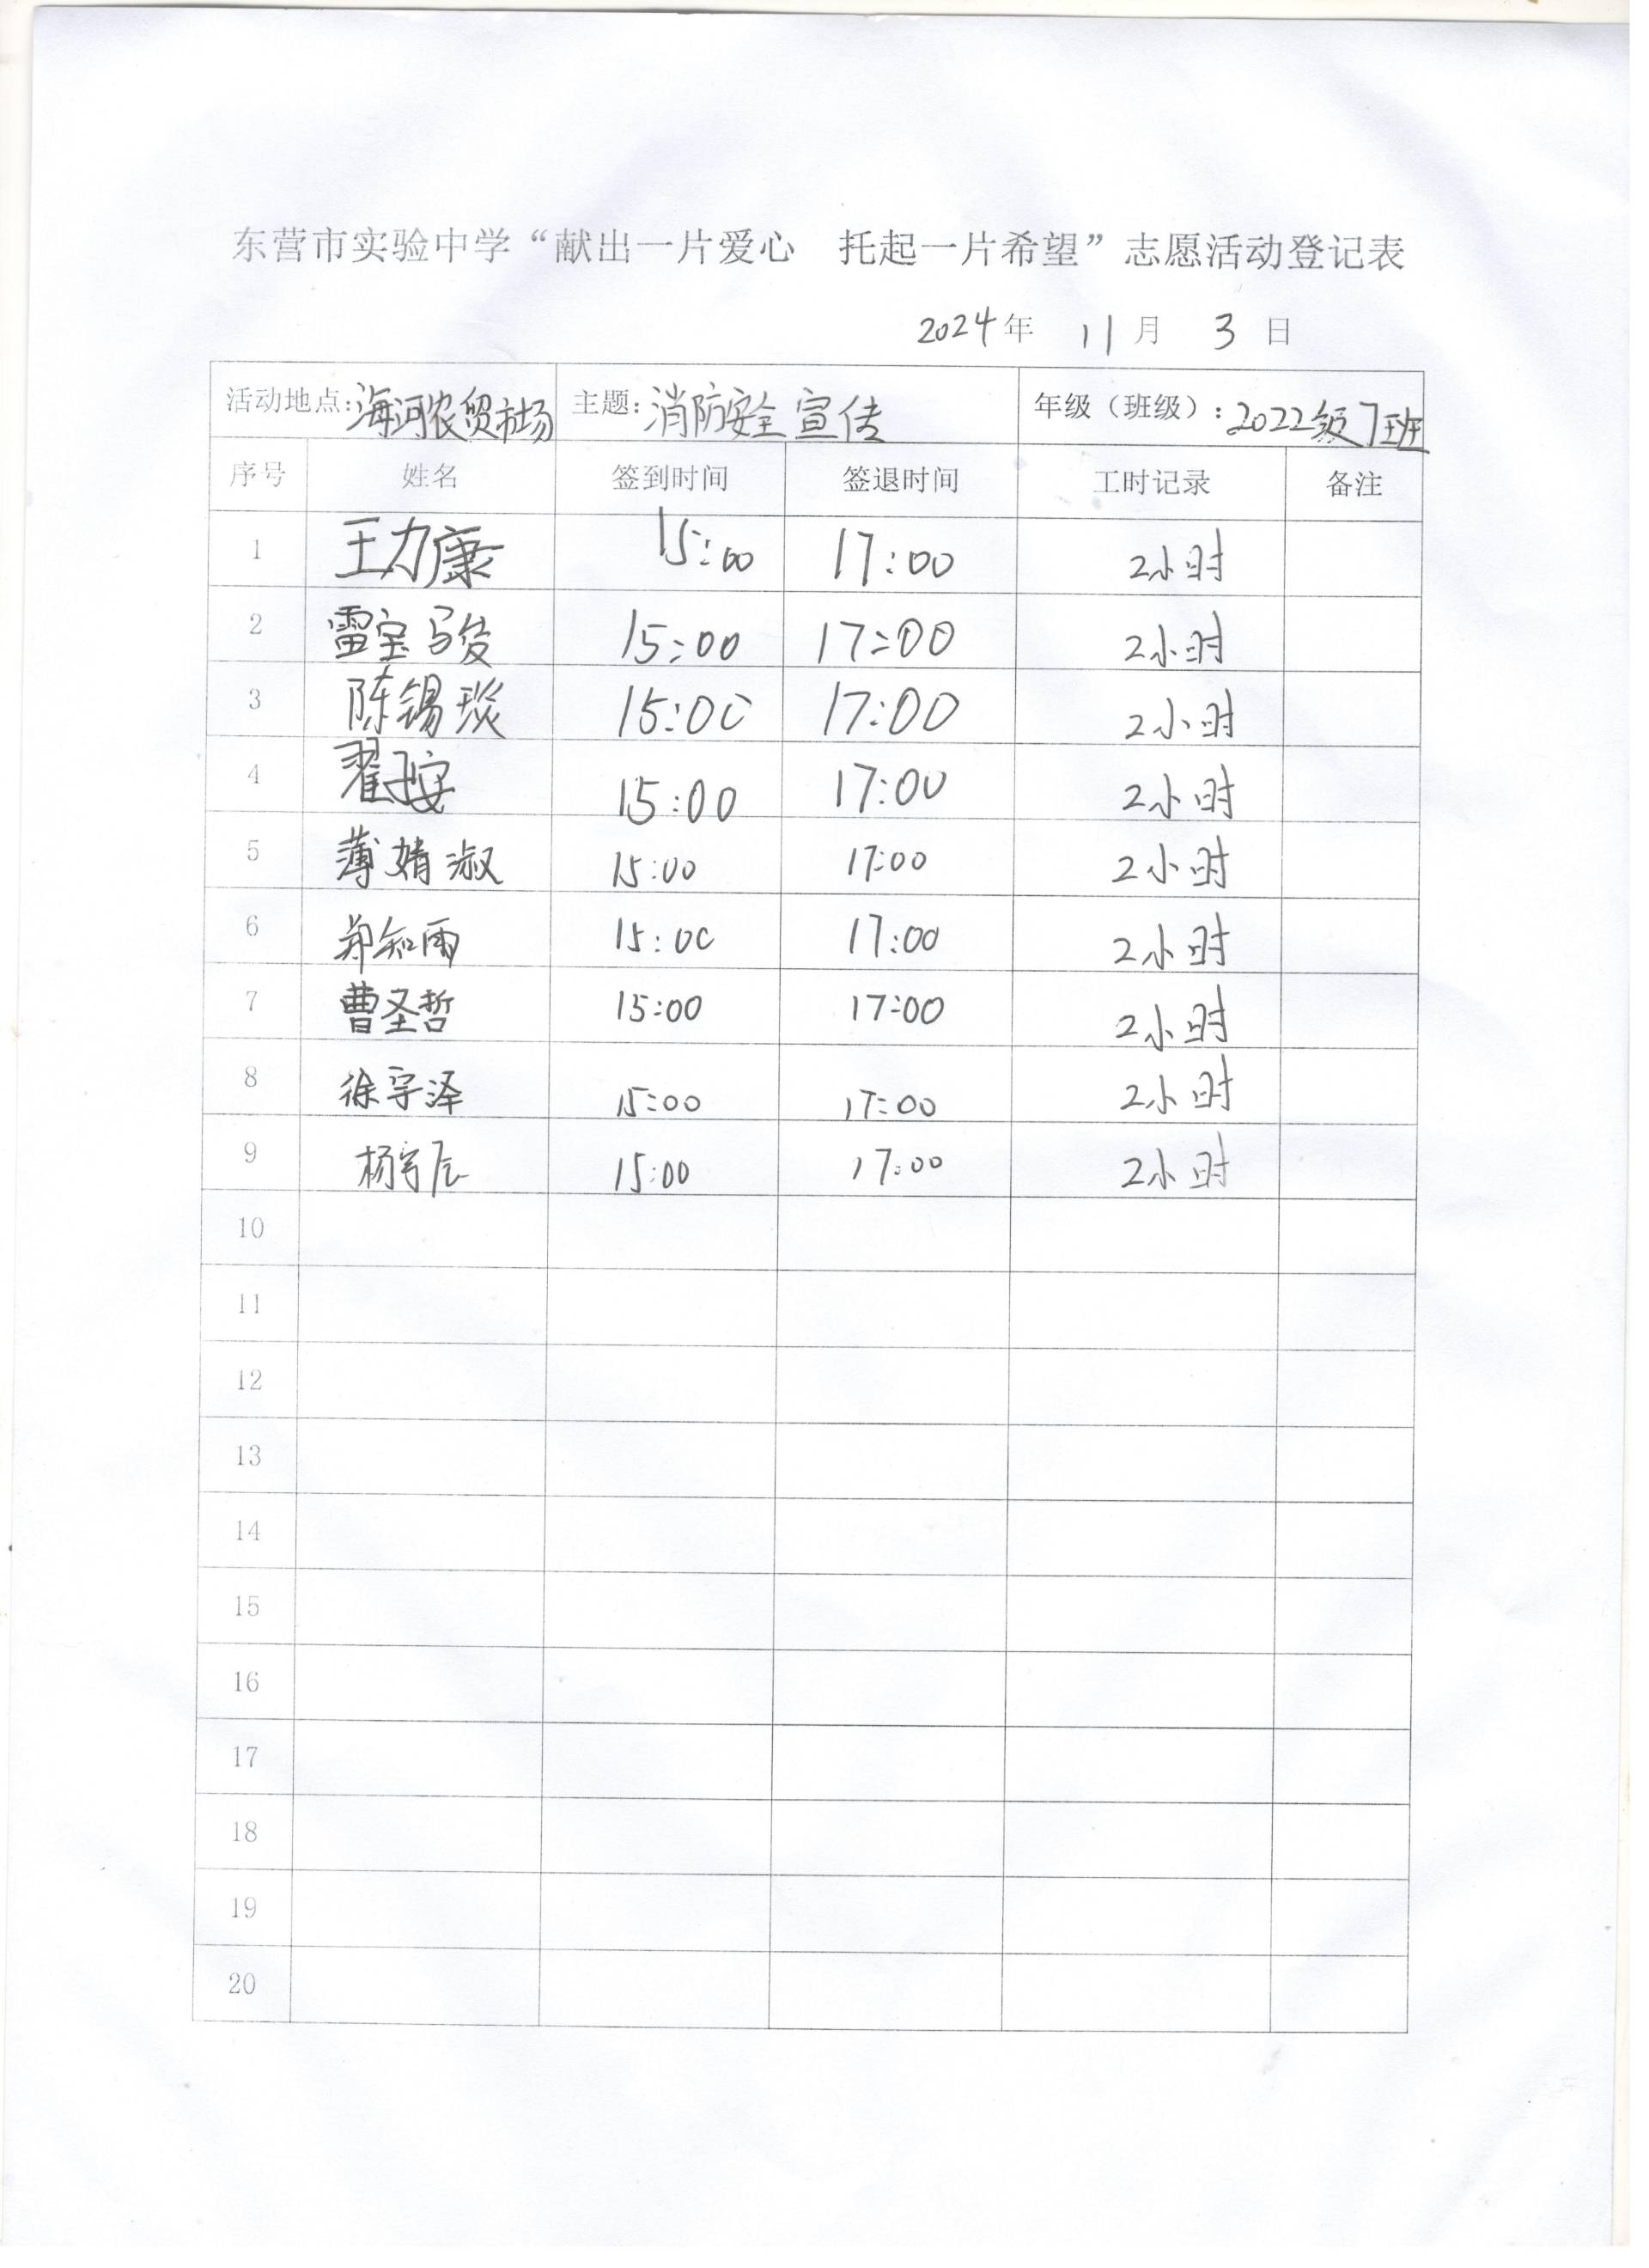 东营市实验中学“献出一片爱心 托起一片希望”志愿活动登记表
2024年 11月 3日
活动地点:海河农贸市场 主题:消防安全宣传 年级（班级）:2022级7班
序号 姓名 签到时间 签退时间 工时记录 备注
1 王力康 15:00 17:00 2小时
2 雷宝骏 15:00 17:00 2小时
3 陈锡琰 15:00 17:00 2小时
4 翟子安 15:00 17:00 2小时
5 薄婧淑 15:00 17:00 2小时
6 郑知雨 15:00 17:00 2小时
7 曹圣哲 15:00 17:00 2小时
8 徐宇泽 15:00 17:00 2小时
9 杨宇辰 15:00 17:00 2小时
10
11
12
13
14
15
16
17
18
19
20